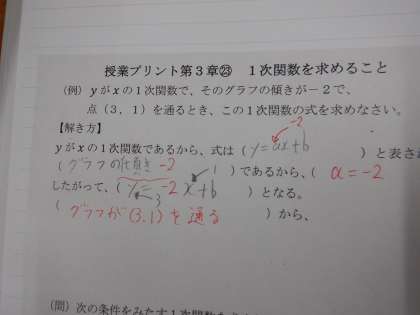 授業プリント第3章㉓ 1次関数を求めること
(例) yがxの1次関数で、そのグラフの傾きが－2で、
点(3，1)を通るとき、この1次関数の式を求めなさい。
【解き方】
-2
yがxの1次関数であるから、式は( y=ax+b )と表さ
(グラフの傾き -2 )であるから、( a=-2
1
したがって、( y=-2x+b )となる。
3
(グラフが(3,1)を通る )から、
(問) 次の条件をみたす1次関数を